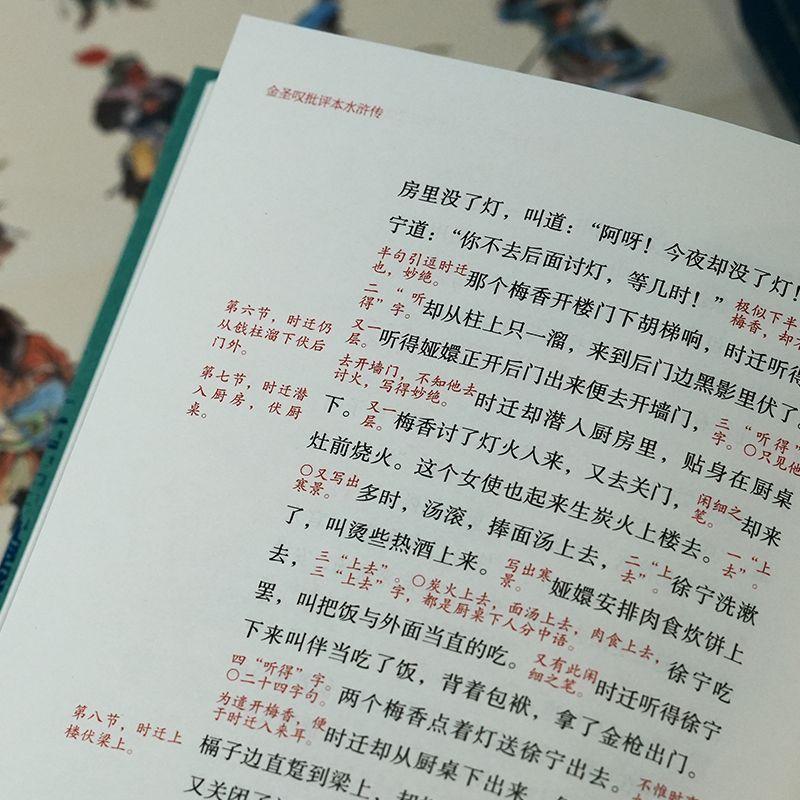 金圣叹批评本水浒传
房里没了灯，叫道：“阿呀！今夜却没了灯！
宁道：“你不去后面讨灯，等几时！”极似下半
梅香，却
半句引逗时迁
也，妙绝。那个梅香开楼门下胡梯响，时迁听得
二“听
得”字。却从柱上只一溜，来到后门边黑影里伏了。
又一
层。听得娅嬛正开后门出来便去开墙门，三“听得”
字。〇只见他
第六节，时迁仍
从戗柱溜下伏后
门外。
去开墙门，不知他去
讨火，写得妙绝。时迁却潜入厨房里，贴身在厨桌
第七节，时迁潜
入厨房，伏厨
桌。
下。又一
层。梅香讨了灯火入来，又去关门，闲细之
笔。却来
灶前烧火。这个女使也起来生炭火上楼去。一“上
去”。
〇又写出
寒景。多时，汤滚，捧面汤上去，二“上
去”。徐宁洗漱
了，叫烫些热酒上来。写出寒
景。娅嬛安排肉食炊饼上
去，三“上去”。〇炭火上去，面汤上去，肉食上去，
三“上去”字，都是厨桌下人分中语。徐宁吃
罢，叫把饭与外面当直的吃。又有此闲
细之笔。时迁听得徐宁
下来叫伴当吃了饭，背着包袱，拿了金枪出门。
四“听得”字。
〇二十四字句。两个梅香点着灯送徐宁出去。
为遣开梅香，便
于时迁入来耳。时迁却从厨桌下出来，
第八节，时迁上
楼伏梁上。
槅子边直踅到梁上，
又关闭了